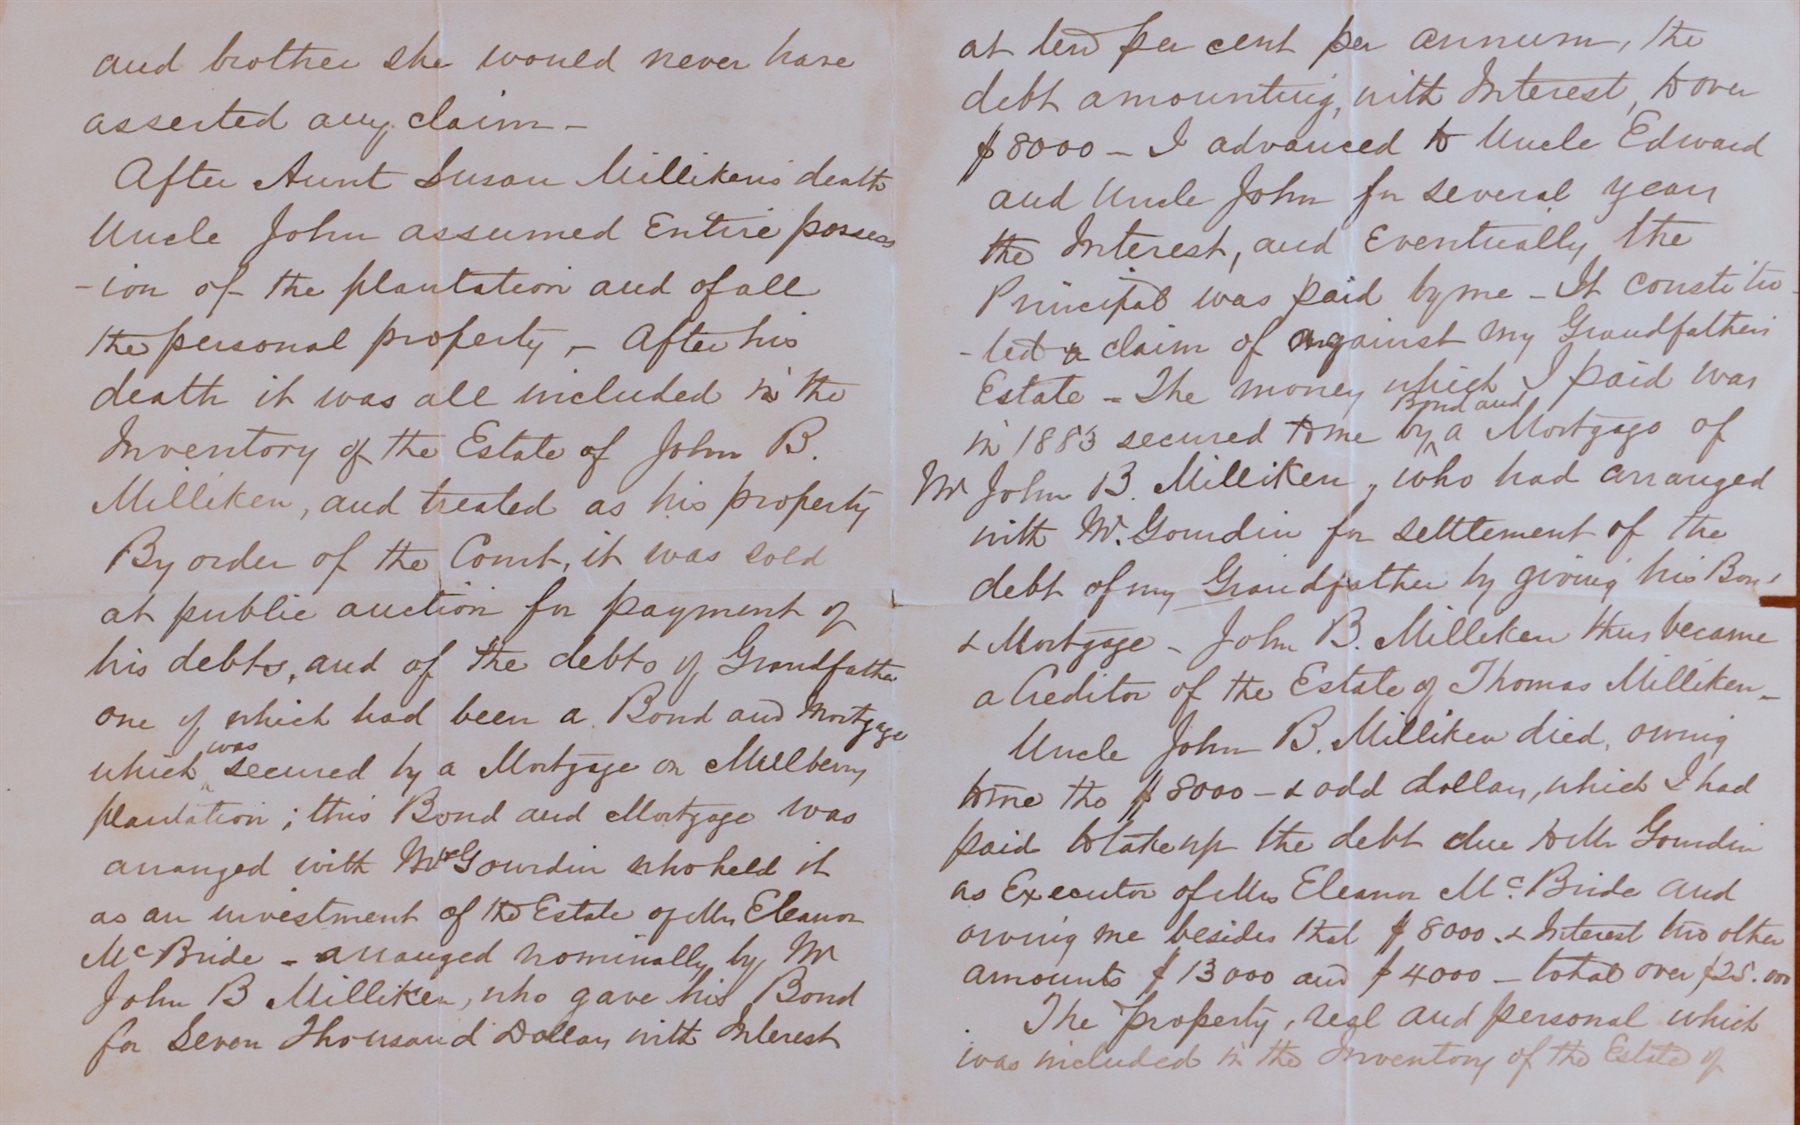 and brother she would never have
asserted any claim –
After Aunt Susan Milliken's death
Uncle John assumed Entire possess
-ion of the plantation and of all
the personal property, – After his
death it was all included in the
Inventory of the Estate of John B.
Milliken, and treated as his property
By order of the Court, it was sold
at public auction for payment of
his debts, and of the debts of Grandfather
one of which had been a Bond and Mortgage
which was secured by a Mortgage on Mulberry
plantation; this Bond and Mortgage was
arranged with Mr Gourdin who held it
as an investment of the Estate of Mrs Eleanor
McBride – arranged nominally by Mr
John B Milliken, who gave his Bond
for Seven Thousand Dollars with Interest
at ten per cent per annum, the
debt amounting, with Interest, to over
$8000 – I advanced to Uncle Edward
and Uncle John for several years
the Interest, and Eventually the
Principal was paid by me – It constitu-
-ted a claim of against my Grandfather's
Estate – The money which I paid was
in 1883 secured to me by Bond and a Mortgage of
Mr John B. Milliken, who had arranged
with Mr. Gourdin for settlement of the
debt of my Grandfather by giving his Bond
& Mortgage – John B. Milliken thus became
a Creditor of the Estate of Thomas Milliken –
Uncle John B. Milliken died, owing
to me the $8000 – & odd dollars, which I had
paid to take up the debt due to Mr Gourdin
as Executor of Mrs Eleanor McBride and
owing me besides that $8000. & Interest two other
amounts $13000 and $4000 – total over $25.000
The property, real and personal which
was included in the Inventory of the Estate of